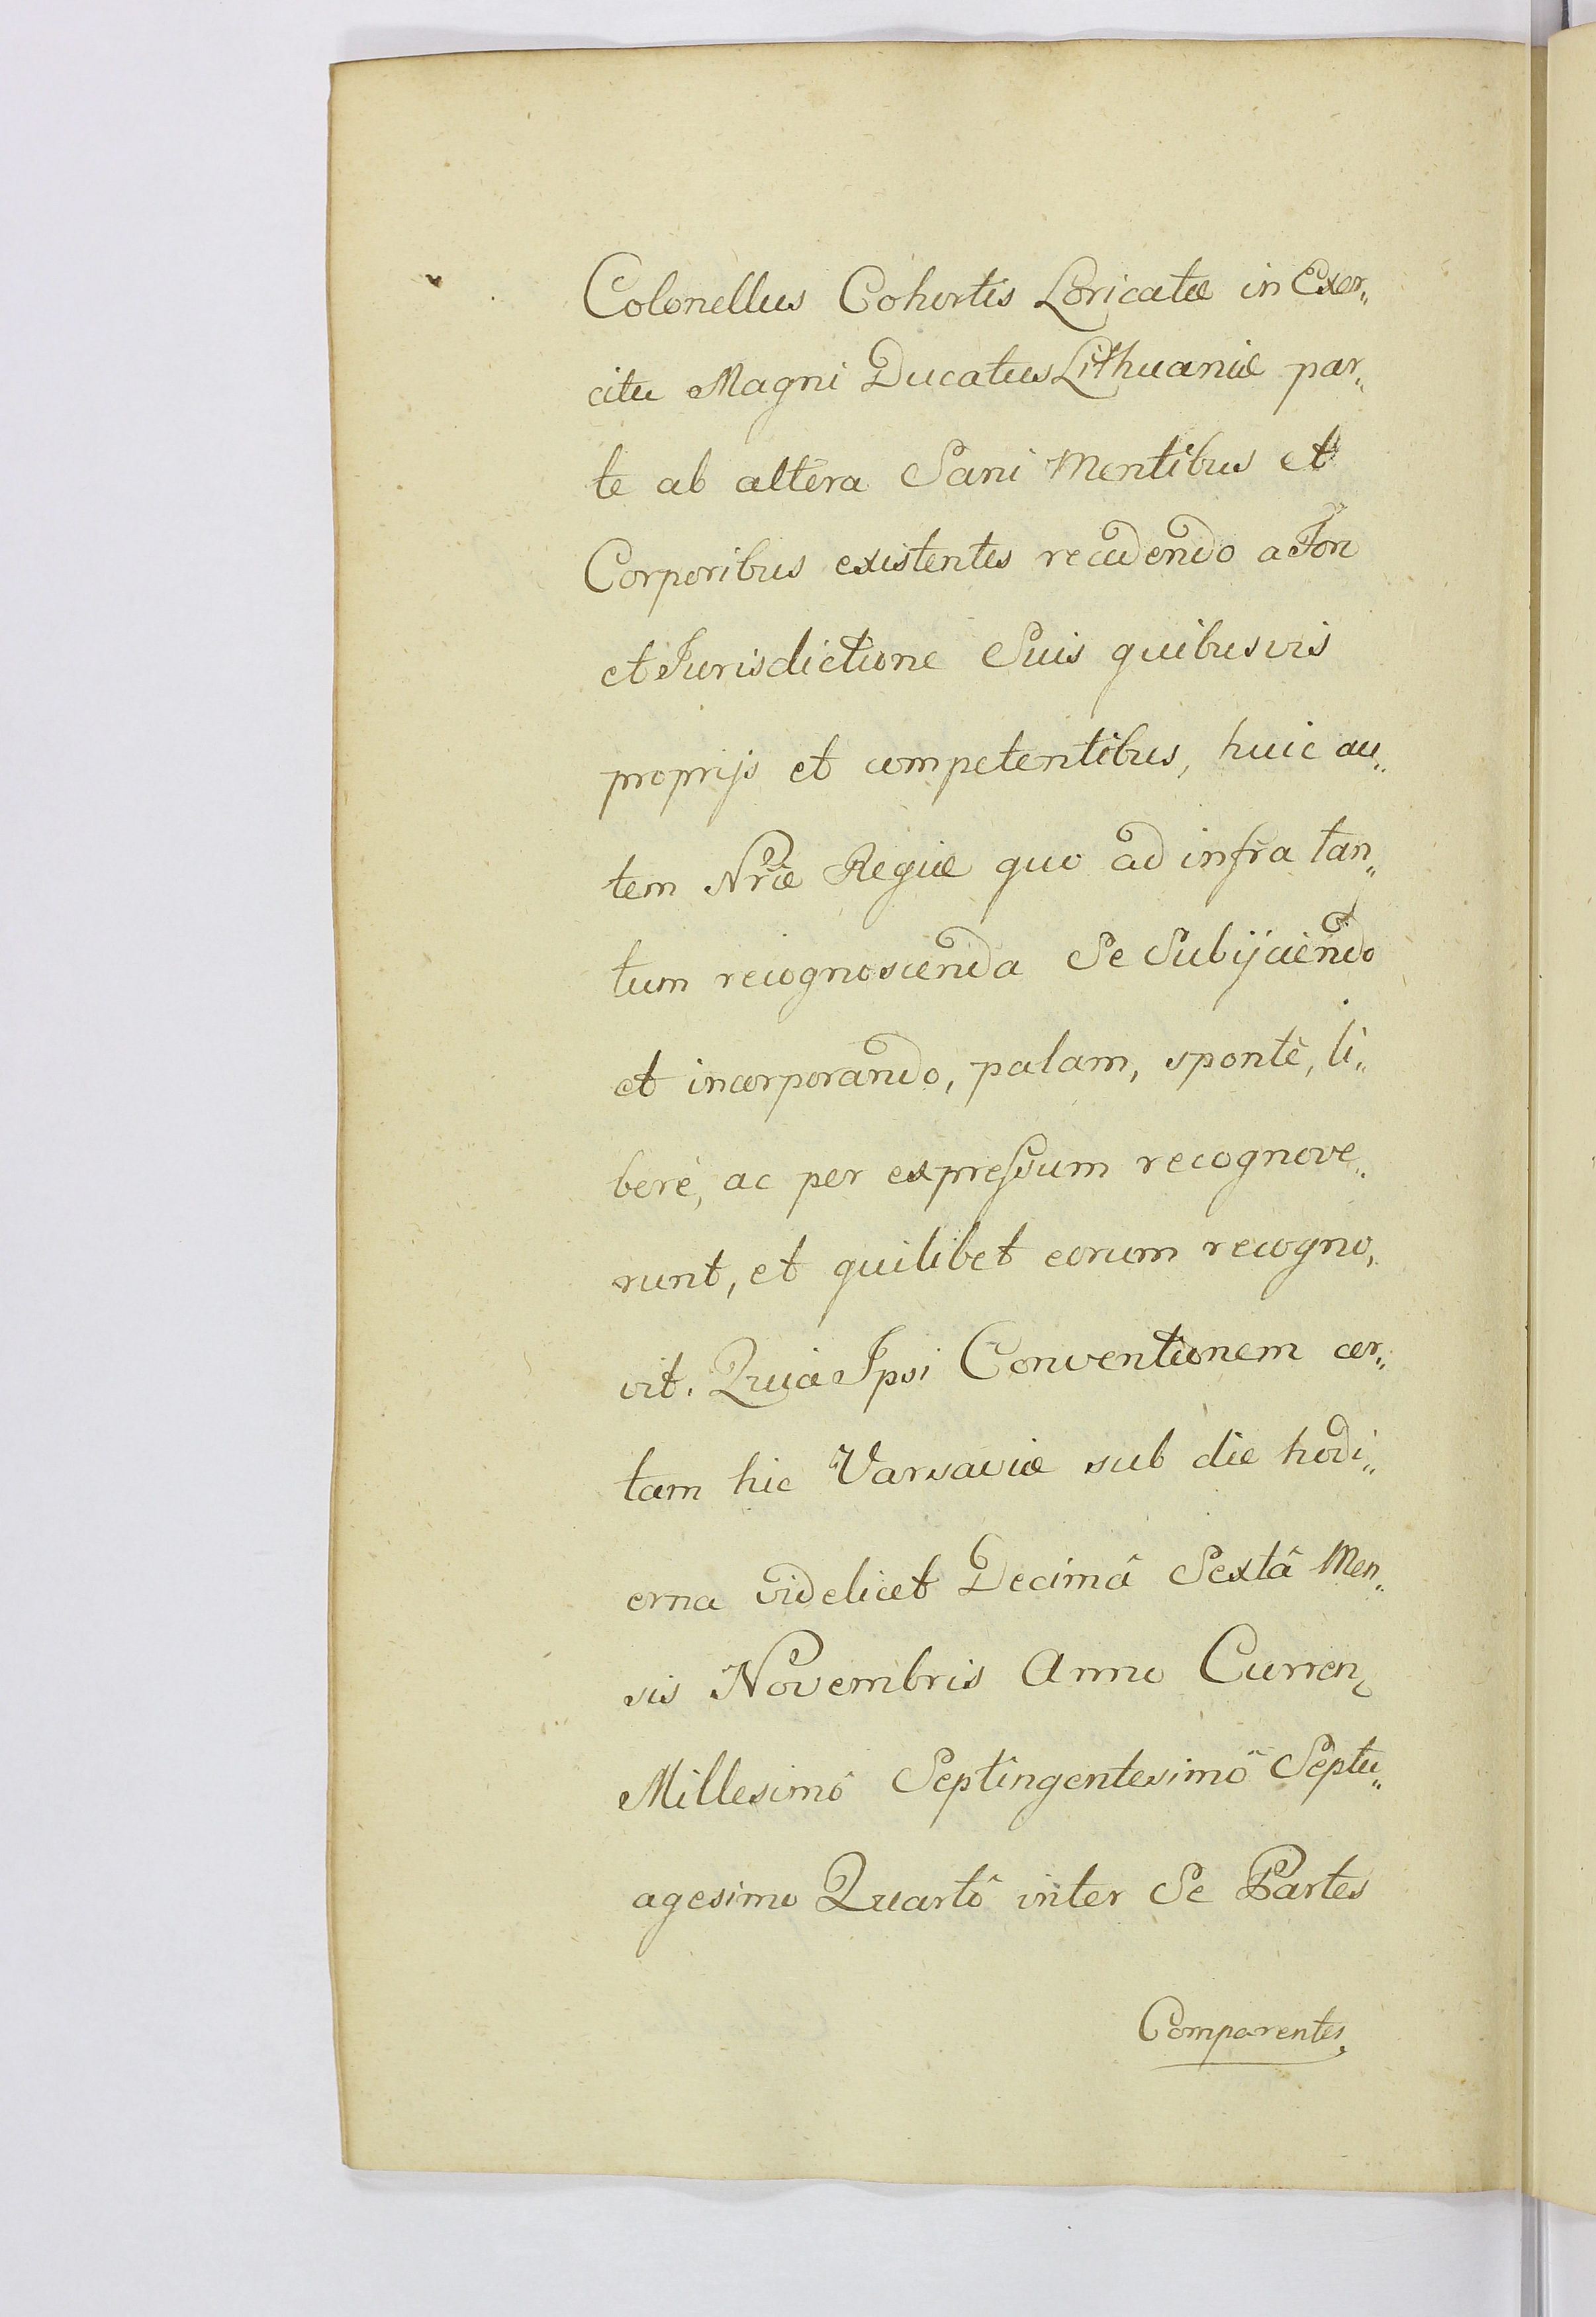 Colonellus Cohortis Loricatæ in Exer„
citu Magni Ducatus Lithuaniæ par„
te ab altera Sani Mentibus et
Corporibus existentes recedendo a Fori
et Jurisdictione Suis quibusvis
proprijs et competentibus, huic au„
tem Nræ Regiæ quo ad infra tan„
tum recognoscenda Se Subijciendo
et incorporando, palam, spontè, li„
berè, ac per expressum recognove„
runt, et quilibet eorum recogno„
vit. Quia Ipsi Conventionem cer„
tam hic Varsaviæ sub die hodi„
erna videlicet Decimâ Sextâ Men„
sis Novembris Anno Curren
Millesimô Septingentesimô Septu„
agesimo Quartô inter Se Partes
Comparentes.